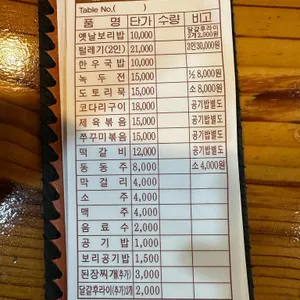 Table No.( )
품 명 단가 수량 비고
옛날보리밥 10,000 달걀후라이 2개2,000원
털레기(2인) 21,000 3인30,000원
한우국밥 10,000
녹두전 15,000 ½ 8,000원
도토리묵 15,000 소 8,000원
코다리구이 18,000 공기밥별도
제육볶음 15,000 공기밥별도
쭈꾸미볶음 15,000 공기밥별도
떡갈비 12,000 공기밥별도
동동주 8,000 소 4,000원
막걸리 4,000
소주 4,000
맥주 4,000
음료수 2,000
공기밥 1,000
보리공기밥 1,500
된장찌개(추가) 3,000
달걀후라이(추가)2개 2,000